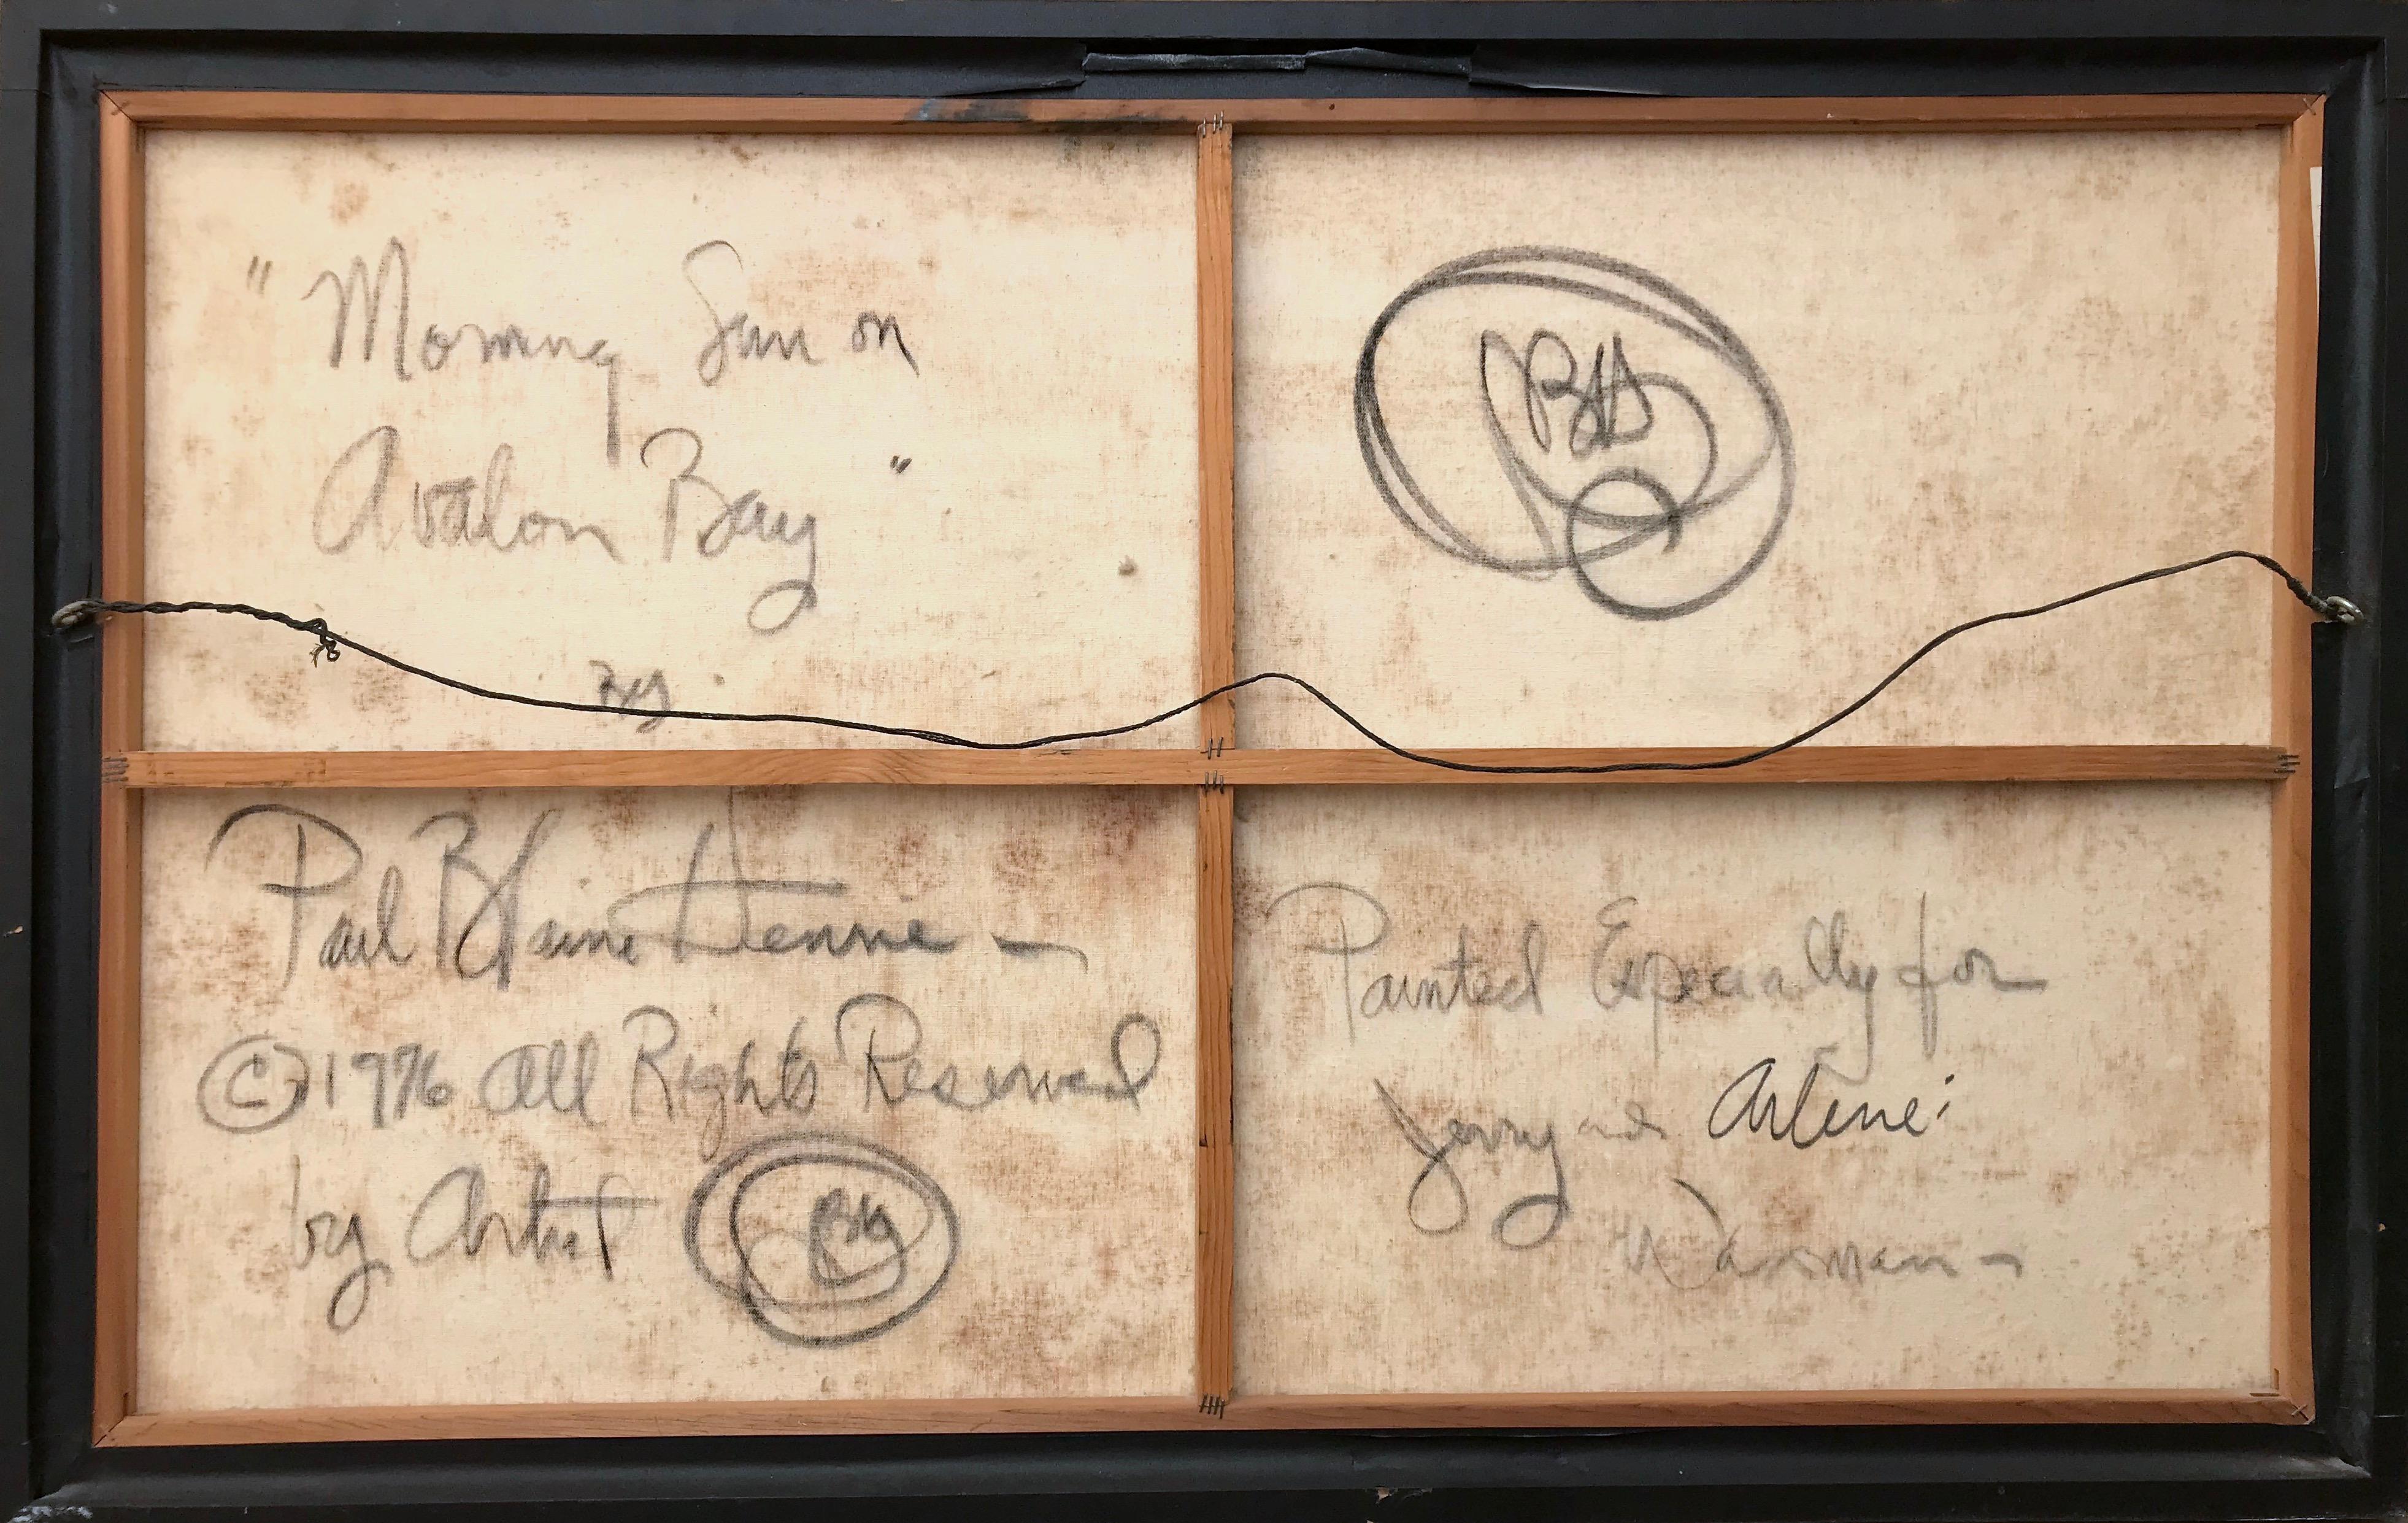 "Morning Sun on
Avalon Bay"
Paul Blaine Henrie —
© 1976 All Rights Reserved
by Artist
Painted Especially for
Jerry and Arlene: